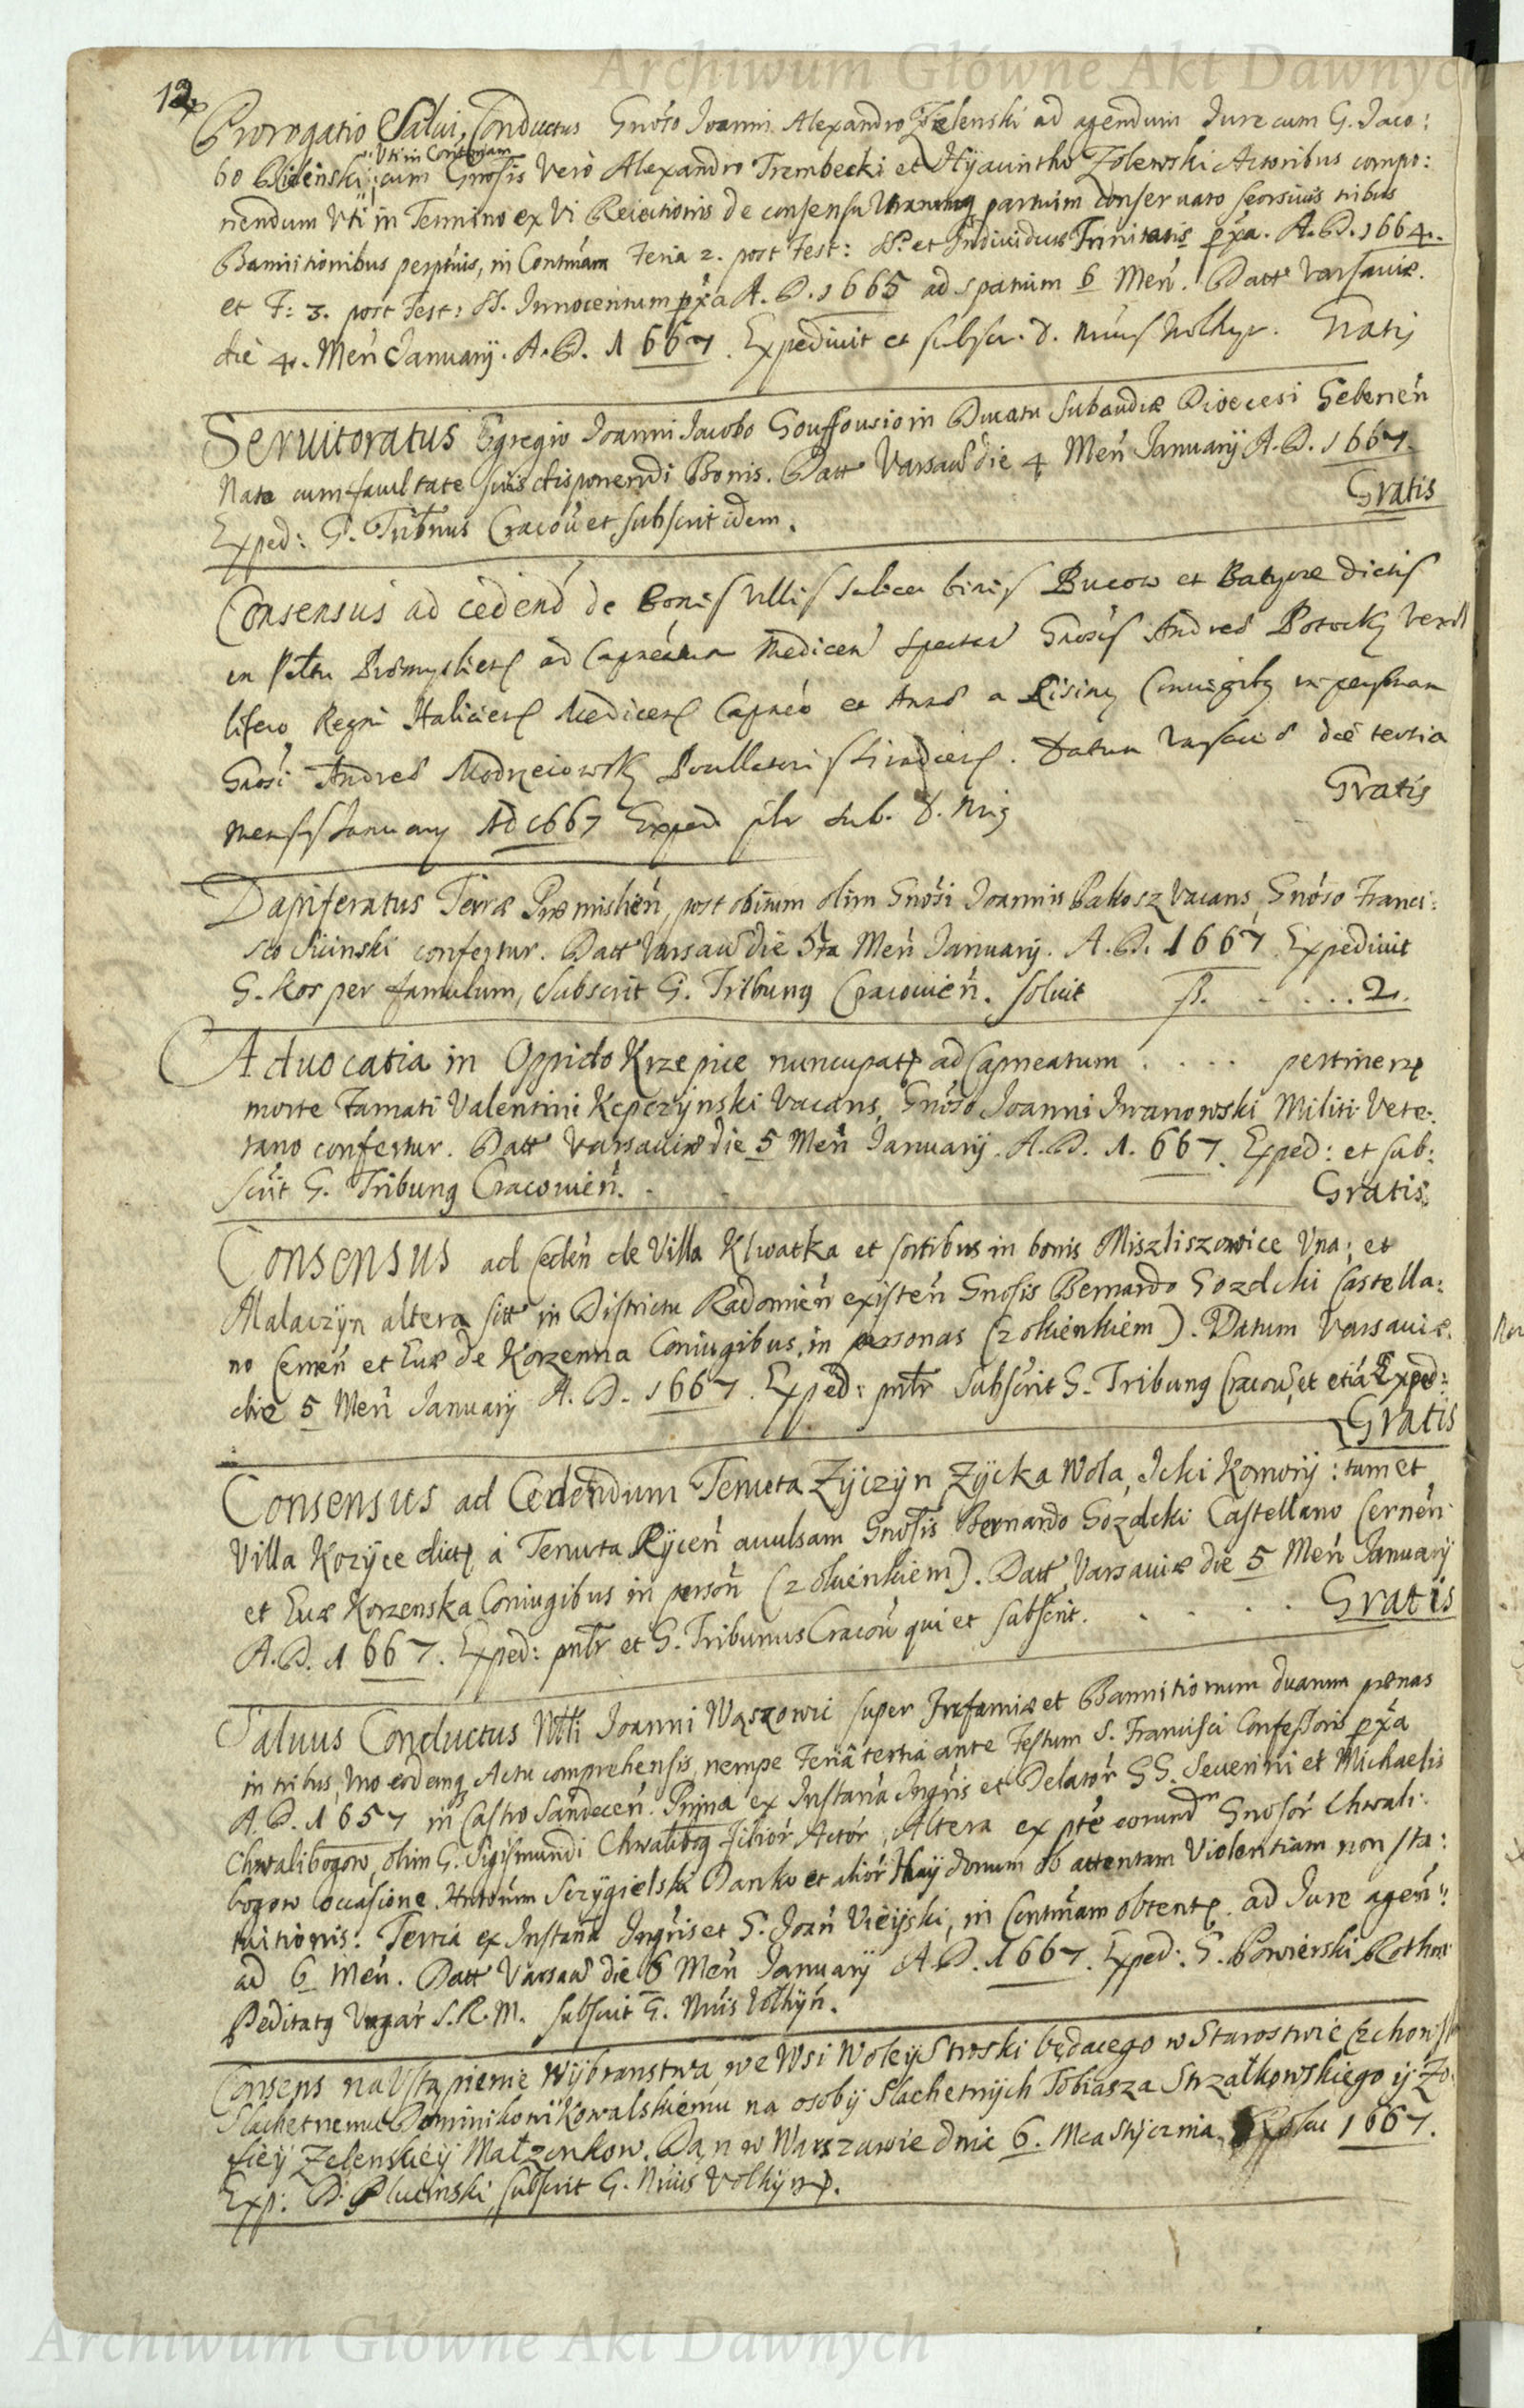 Archiwum Główne Akt Dawnych
12
Prorogatio Salui Conductus Gnoso Joanni Alexandro Zelenski ad agendum Jure cum G. Jaco:
Vti in Contumam
bo cum Gnosis Vero Alexandro Trembecki et Hyacintho Zolewski Actoribus compo:
nendum Vti in Termino ex Vi Reiectionis de consensu partium conseruato seorsiuis tribus
Bannitionibus perptuis, in Contumam Feria 2. post Fest: SS. et Indiuiduæ Trinitatis pxa. A.D. 1664.
et F: 3. post Fest: SS. Innocentum pxa A.D. 1665 ad spatium 6 Men. Datt Varsauiæ.
die 4. Men January. A.D. 1667. Expediuit et subscr. G. Gratis
Seruitoratus Egregio Joanni Jacobo Gouffousio in Ducatu Subaudiæ Dioecesi Gebenen
Nato cum facultate suis disponendi Bonis. Datt Varsau die 4 Men January A.D. 1667.
Gratis
Exped: G. Tribnus Cracou et subscrit idem.
Consensus ad cedend de bonis Villis Bucow et dictis
in ad Capneatum Medicen spectan Gnosis Andreæ Potocky Vexil
lifero Regni Haliciens Medicens Capneo et Annæ a Coniugibus in personam
Gnosi Andreæ Modrzeiowsky Siradiens. Datum die tertia
mensis January AD 1667 Exped sub. G. Gratis
Dapiferatus Terræ Præmislien, post obitum olim Gnosi Joannis Bakosz Vacans, Gnoso Franci:
sco confertur. Datt Varsau die 5ta Men January. A.D. 1667. Expediuit
G. Kos per famulum, Subscrit G. Tribung Cracouien. soluit . . . . 2.
Aduocatia in Oppido Krzepice nuncupat ad Capneatum . . . . pertinen
morte Famati Valentini Kepczynski Vacans, Gnoso Joanni Iwanowski Militi Vete:
rano confertur. Datt Varsauiæ die 5 Men January. A.D. 1667. Exped: et sub:
scrit G. Tribung Cracouien. Gratis.
Consensus ad Ceden de Villa Klwatka et sortibus in bonis Miszliszowice Vna; et
Malaczyn altera sitt in Districtu Radomien existen Gnosis Bernardo Gozdcki Castella:
no Cernen et Euæ de Korzenna Coniugibus, in personas (z okienkiem). Datum Varsauiæ.
die 5 Men January A.D. 1667. Exped: pntr subscrit G. Tribung Cracou, et etia Exped:
Gratis
Consensus ad Cedendum Tenuta Zyczyn Zycka Wola, Icki Komory: tum et
Villa Kozyce dict à Tenuta Rycen auulsam Gnosis Bernardo Gozdcki Castellano Cernen
et Euæ Korzenska Coniugibus in person (z okienkiem). Datt Varsauiæ die 5 Men January
A.D. 1667. Exped: pntr et G. Tribunus Cracou qui et subscrit. . . . . Gratis
Saluus Conductus Nbli Joanni Wąszowic super Infamiæ et Bannitionum duarum pænas
in tribus, vno eodemq Actu comprehensis, nempe Feria tertia ante Festum S. Francisci Confessoris pxa
A.D. 1657 in Castro Sandecen. Prima ex Instana Ingris et Delator GG. Seuerini et Michaelis
Chwalibogow, olim G. Sigismundi Chwalibog Filior Actor, Altera ex pte eorund Gnosor Chwali:
bogow occasione Danko et alior Haydonum ob attentam Violentiam non sta:
tuitionis. Tertia ex Instana Ingris et G. Joan, in Contumam obtent. ad Jure agen:
ad 6 Men. Datt Varsau die 6 Men January A.D. 1667. Exped: G. Powierski Rothm
Peditatg Vngar S.R.M. subscrit G. Nriis Volhyn.
Consens na Vstąpienie Wybranstwa, we Wsi Woley Stroski będącego w Starostwie Czchow
Slachetnemu Dominikowi Kowalskiemu na osoby Slachetnych Tobiasza Strzalkowskiego y Zo
fiey Zelenskiey Małzonkow. Dan w Warszawie dnia 6. Mca Stycznia. Roku 1667.
Exp: D. subscrit G. Nriis Volhyn.
Archiwum Główne Akt Dawnych